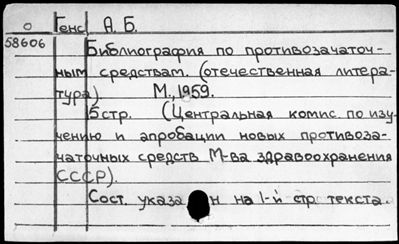 О Генс А. Б.
58606
Библиография по противозачаточ-
ным средствам. (отечественная литера-
тура). М., 1959.
5стр. (Центральная комис. по изу-
чению и апробации новых противоза-
чаточных средств М-ва здравоохранения
СССР).
Сост. указан на 1-й стр текста.